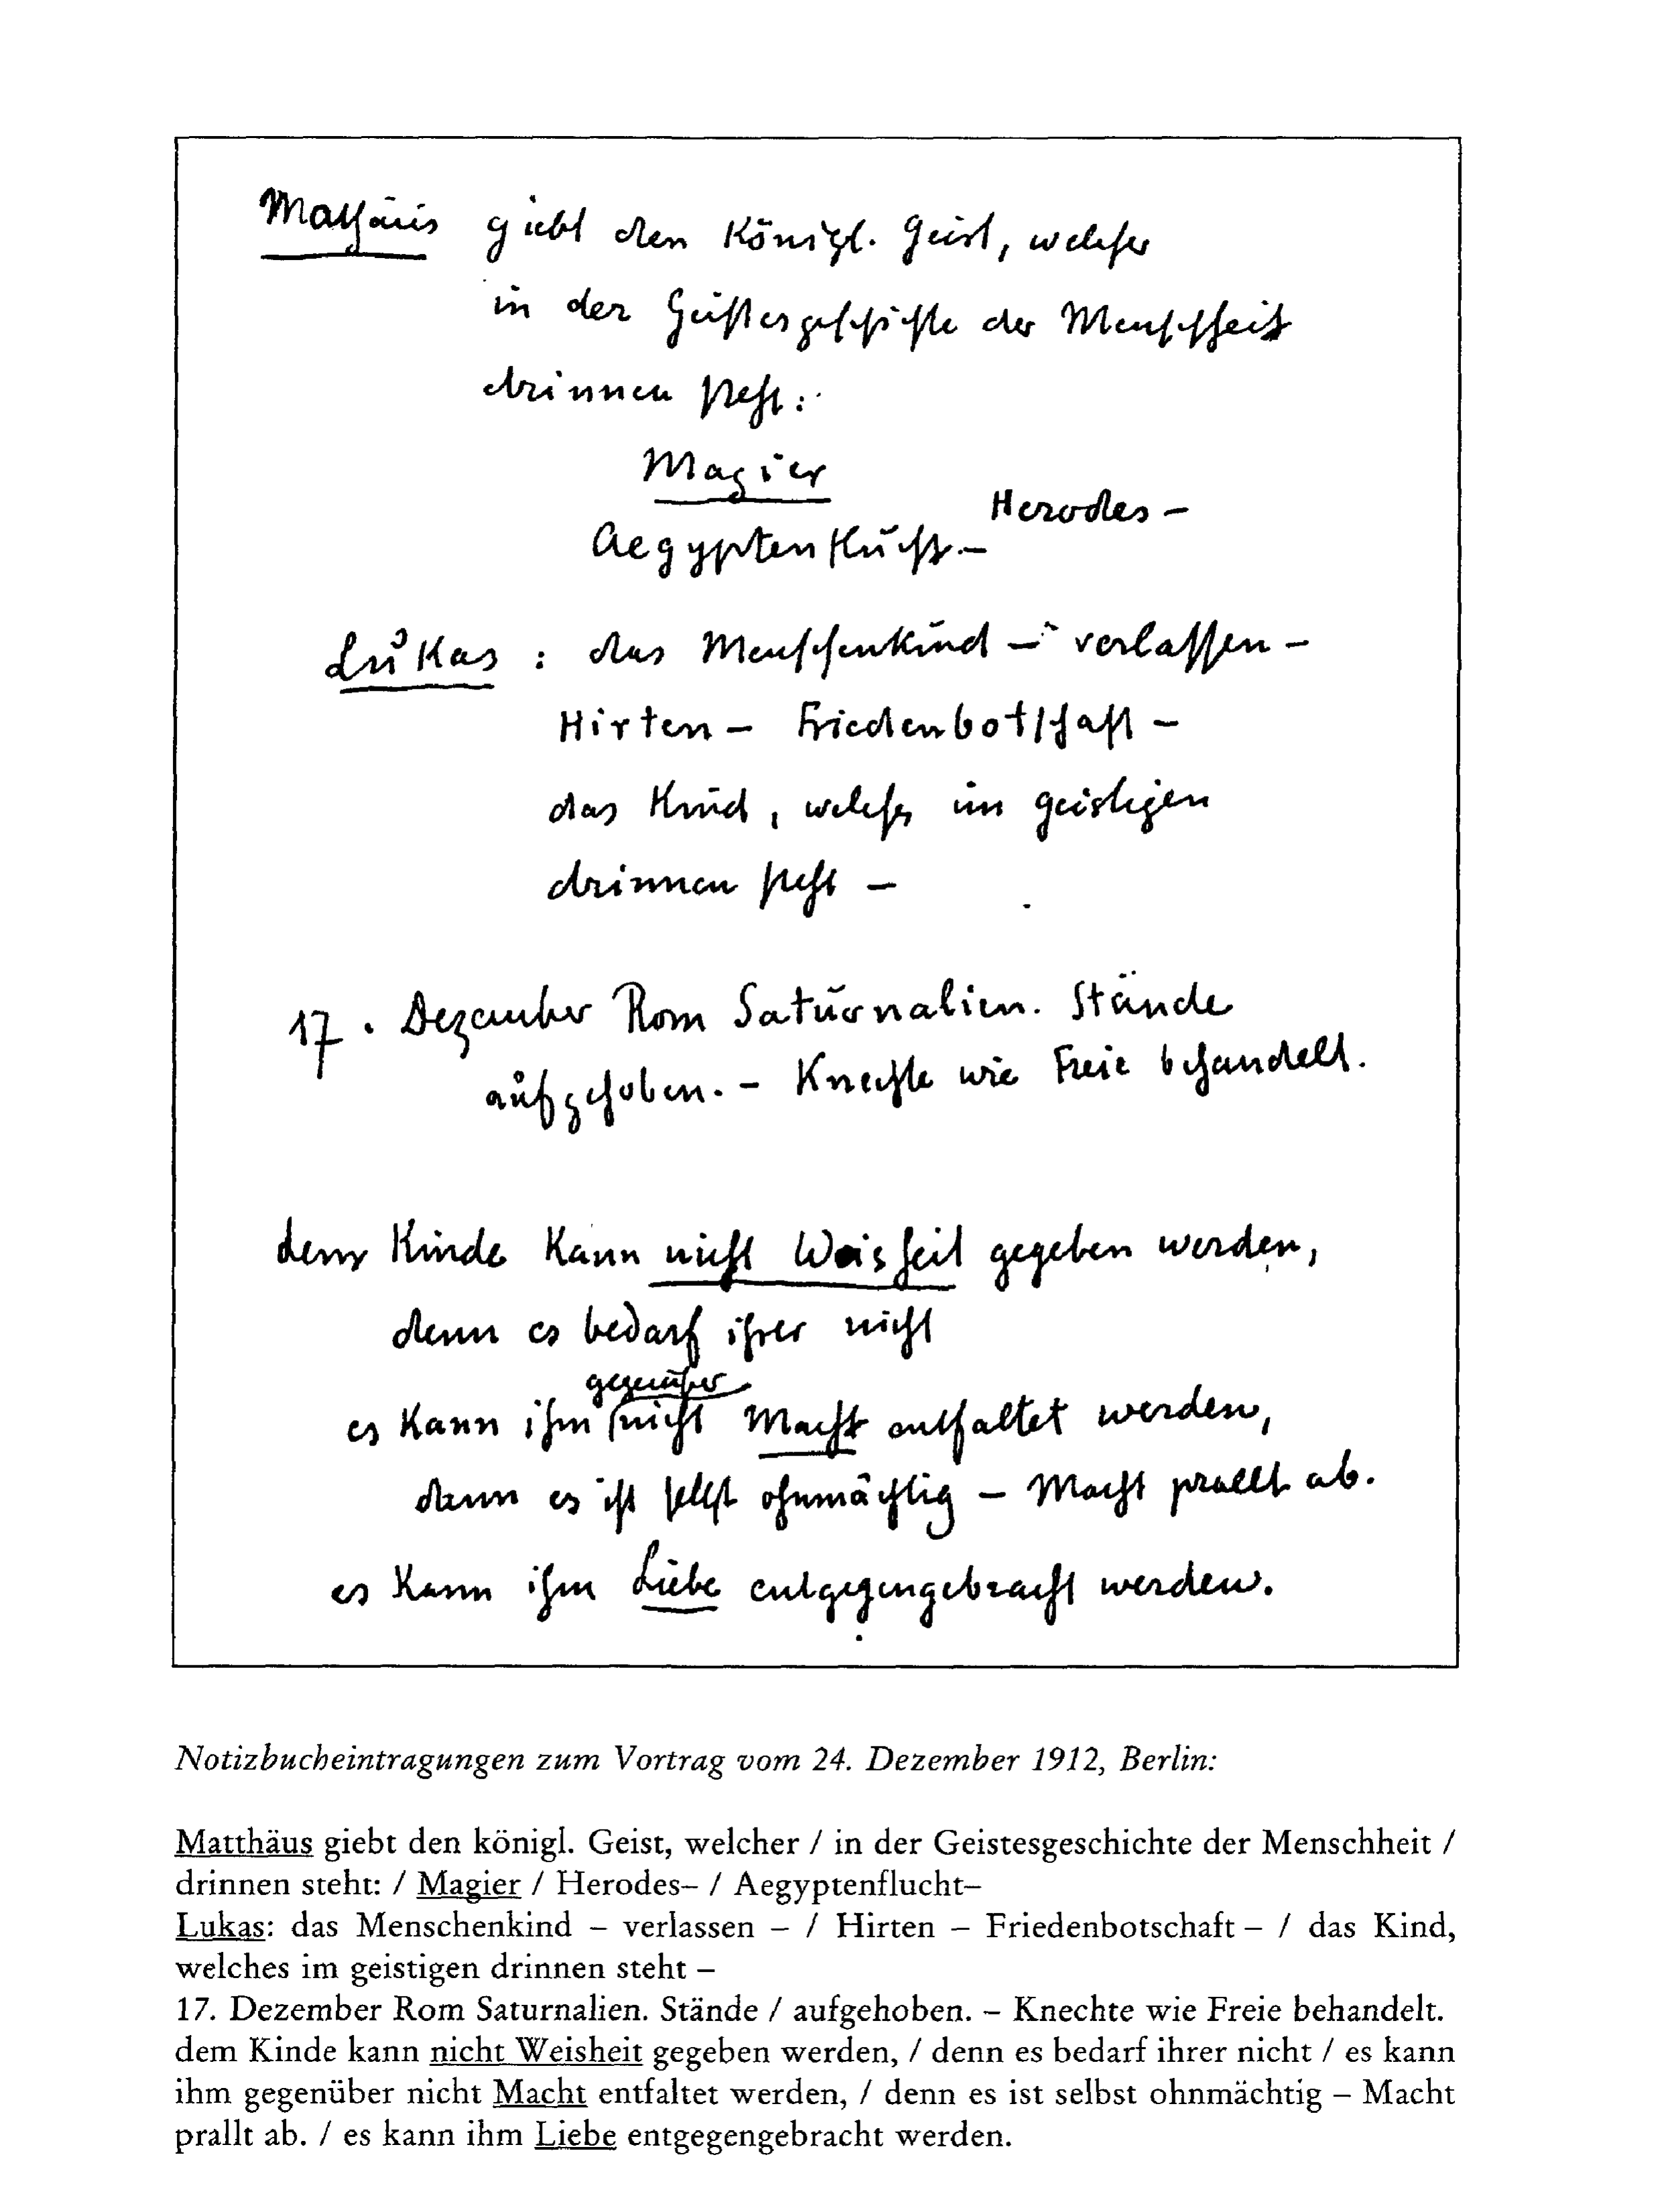 Mathäus giebt den Königl. Geist, welcher
in der Geistesgeschichte der Menschheit
drinnen steht:
Magier
Herodes –
Aegyptenflucht. –
Lukas : das Menschenkind – verlassen –
Hirten – Friedenbotschaft –
das Kind, welches im geistigen
drinnen steht –
17. Dezember Rom Saturnalien. Stände
aufgehoben. – Knechte wie Freie behandelt.
dem Kinde kann nicht Weisheit gegeben werden,
denn es bedarf ihrer nicht
gegenüber
es kann ihm nicht Macht entfaltet werden,
denn es ist selbst ohnmächtig – Macht prallt ab.
es kann ihm Liebe entgegengebracht werden.
Notizbucheintragungen zum Vortrag vom 24. Dezember 1912, Berlin:
Matthäus giebt den königl. Geist, welcher / in der Geistesgeschichte der Menschheit /
drinnen steht: / Magier / Herodes– / Aegyptenflucht–
Lukas: das Menschenkind – verlassen – / Hirten – Friedenbotschaft – / das Kind,
welches im geistigen drinnen steht –
17. Dezember Rom Saturnalien. Stände / aufgehoben. – Knechte wie Freie behandelt.
dem Kinde kann nicht Weisheit gegeben werden, / denn es bedarf ihrer nicht / es kann
ihm gegenüber nicht Macht entfaltet werden, / denn es ist selbst ohnmächtig – Macht
prallt ab. / es kann ihm Liebe entgegengebracht werden.